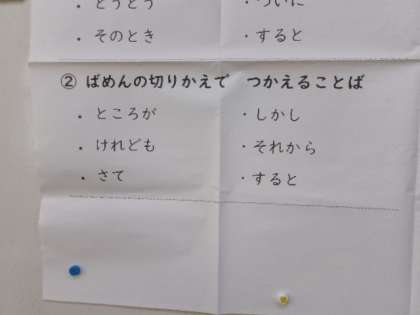 ・とうとう　・ついに
・そのとき　・すると
② ばめんの切りかえで　つかえることば
・ところが　・しかし
・けれども　・それから
・さて　・すると